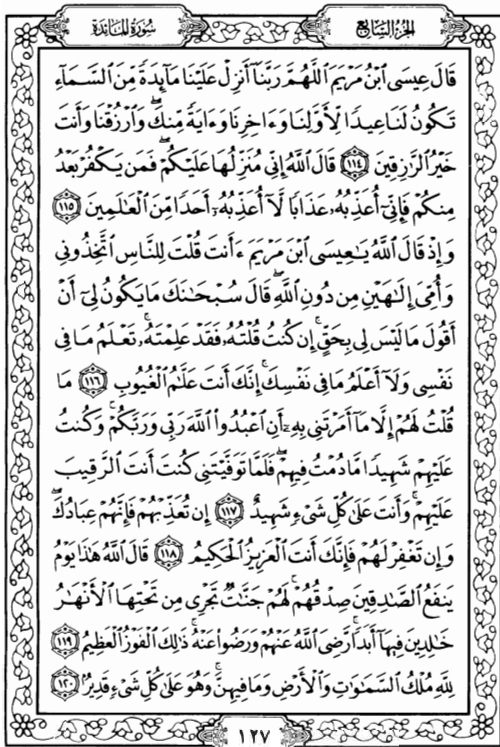 سُورَةُ المَائِدَةِ الجُزْءُ السَّابِعُ
قَالَ عِيسَى ٱبْنُ مَرْيَمَ ٱللَّهُمَّ رَبَّنَآ أَنزِلْ عَلَيْنَا مَآئِدَةً مِّنَ ٱلسَّمَآءِ
تَكُونُ لَنَا عِيدًا لِّأَوَّلِنَا وَءَاخِرِنَا وَءَايَةً مِّنكَ ۖ وَٱرْزُقْنَا وَأَنتَ
خَيْرُ ٱلرَّٰزِقِينَ ١١٤ قَالَ ٱللَّهُ إِنِّى مُنَزِّلُهَا عَلَيْكُمْ ۖ فَمَن يَكْفُرْ بَعْدُ
مِنكُمْ فَإِنِّىٓ أُعَذِّبُهُۥ عَذَابًا لَّآ أُعَذِّبُهُۥٓ أَحَدًا مِّنَ ٱلْعَٰلَمِينَ ١١٥
وَإِذْ قَالَ ٱللَّهُ يَٰعِيسَى ٱبْنَ مَرْيَمَ ءَأَنتَ قُلْتَ لِلنَّاسِ ٱتَّخِذُونِى
وَأُمِّىَ إِلَٰهَيْنِ مِن دُونِ ٱللَّهِ ۖ قَالَ سُبْحَٰنَكَ مَا يَكُونُ لِىٓ أَنْ
أَقُولَ مَا لَيْسَ لِى بِحَقٍّ ۚ إِن كُنتُ قُلْتُهُۥ فَقَدْ عَلِمْتَهُۥ ۚ تَعْلَمُ مَا فِى
نَفْسِى وَلَآ أَعْلَمُ مَا فِى نَفْسِكَ ۚ إِنَّكَ أَنتَ عَلَّٰمُ ٱلْغُيُوبِ ١١٦ مَا
قُلْتُ لَهُمْ إِلَّا مَآ أَمَرْتَنِى بِهِۦٓ أَنِ ٱعْبُدُوا۟ ٱللَّهَ رَبِّى وَرَبَّكُمْ ۚ وَكُنتُ
عَلَيْهِمْ شَهِيدًا مَّا دُمْتُ فِيهِمْ ۖ فَلَمَّا تَوَفَّيْتَنِى كُنتَ أَنتَ ٱلرَّقِيبَ
عَلَيْهِمْ ۚ وَأَنتَ عَلَىٰ كُلِّ شَىْءٍ شَهِيدٌ ١١٧ إِن تُعَذِّبْهُمْ فَإِنَّهُمْ عِبَادُكَ ۖ
وَإِن تَغْفِرْ لَهُمْ فَإِنَّكَ أَنتَ ٱلْعَزِيزُ ٱلْحَكِيمُ ١١٨ قَالَ ٱللَّهُ هَٰذَا يَوْمُ
يَنفَعُ ٱلصَّٰدِقِينَ صِدْقُهُمْ ۚ لَهُمْ جَنَّٰتٌ تَجْرِى مِن تَحْتِهَا ٱلْأَنْهَٰرُ
خَٰلِدِينَ فِيهَآ أَبَدًا ۚ رَّضِىَ ٱللَّهُ عَنْهُمْ وَرَضُوا۟ عَنْهُ ۚ ذَٰلِكَ ٱلْفَوْزُ ٱلْعَظِيمُ ١١٩
لِلَّهِ مُلْكُ ٱلسَّمَٰوَٰتِ وَٱلْأَرْضِ وَمَا فِيهِنَّ ۚ وَهُوَ عَلَىٰ كُلِّ شَىْءٍ قَدِيرٌۢ ١٢٠
١٢٧